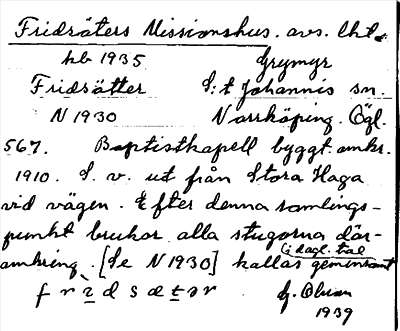 Fridsäters Missionshus. avs. Cht.
hb 1935 Grymyr
Fridsätter S:t Johannis sn.
N 1930 Norrköping. Ögl.
567. Baptistkapell byggt omkr.
1910. S. v. ut från Stora Haga
vid vägen. Efter denna samlings-
punkt brukar alla stugorna där-
(i dagl. tal
omkring [Se N 1930] kallas gemensamt
f r ì d s æ t ə r G. Olsson
1939